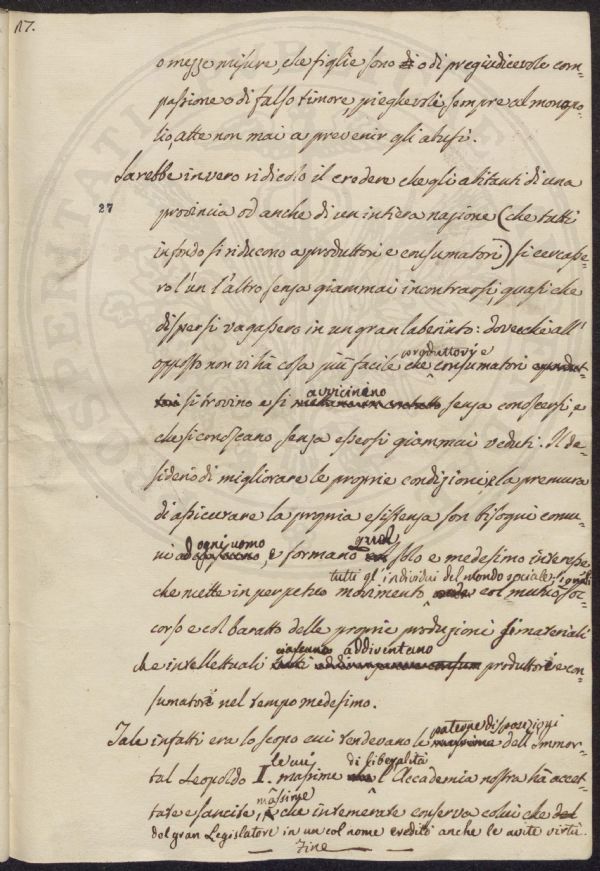 117.
o mezze misure, che figlie sono di o di pregiudicevole com-
passione o di falso timore, pieghevoli sempre al monopo-
lio, atte non mai a prevenir gli abusi.
Sarebbe invero ridicolo il credere che gli abitanti di una
27
provincia od anche di un intiera nazione (che tutti
in fondo si riducono a produttori e consumatori) si cercasse-
ro l'un l'altro senza giammai incontrarsi, quasi che
dispersi vagassero in un gran laberinto: dovechè all'
opposto non vi hà cosa più facile che produttori e consumatori
si trovino e si avvicinino senza conoscersi e
che si conoscano senza essersi giammai veduti. Il de-
siderio di migliorare le proprie condizioni, e la premura
di assicurare la propria esistenza son bisogni comu-
ni ad ogni uomo, e formano quel solo e medesimo interesse
che mette in perpetuo movimento tutti gl'individui del mondo sociale, i quali col mutuo soc-
corso e col baratto delle proprie produzioni sì materiali
che intellettuali ciascuno addiventano produttori e con-
sumatori nel tempo medesimo.
Tale infatti era lo scopo cui tendevano le paterne disposizioni dell'Immor-
tal Leopoldo I. le cui massime di liberalità l'Accademia nostra hà accet-
tate e sancite, massime che intemerate conserva colui che
del gran Legislatore in un col nome ereditò anche le avite virtù.
Fine